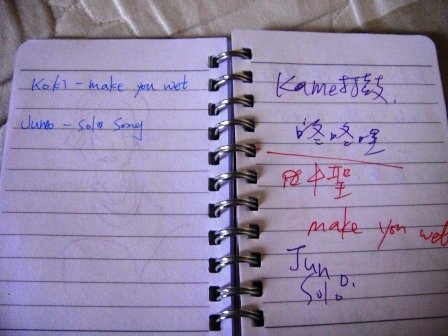 Koki - make you wet
Junno - Solo Song
Kame打鼓.
咚咚哩
田中聖
make you wet
Jun
Solo.